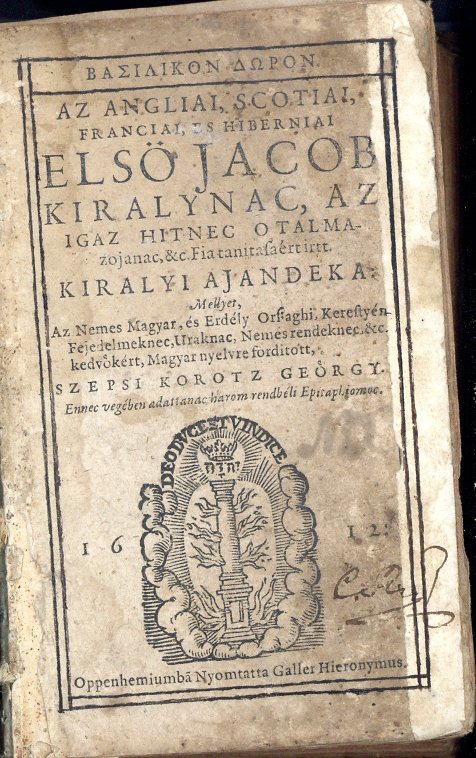 ΒΑΣΙΛΙΚΟΝ ΔΩΡΟΝ.
AZ ANGLIAI, SCOTIAI,
FRANCIAI, ES HIBERNIAI
ELSÖ JACOB
KIRALYNAC, AZ
IGAZ HITNEC OTALMA-
zojanac, &c. Fia tanitaſaért irtt.
KIRALYI AJANDEKA:
Mellyet,
Az Nemes Magyar, és Erdély Orſzaghi, Kereſtyén
Fejedelmeknec, Uraknac, Nemes rendeknec, &c.
kedvökért, Magyar nyelvre forditott,
SZEPSI KOROTZ GEÖRGY.
Ennec vegében adattanac harom rendbéli Epitaphiomoc.
DEO DUCE ET VINDICE
יהוה
16 12.
Oppenhemiumbã Nyomtatta Galler Hieronymus.